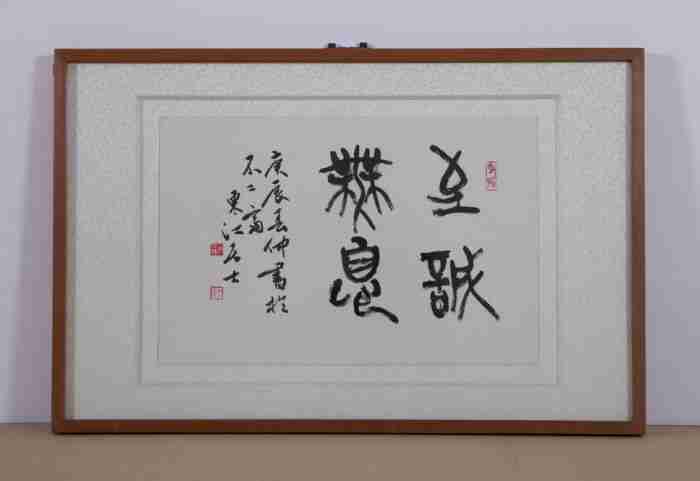 至誠
無息
庚辰春仲書於
不二齋
東江居士